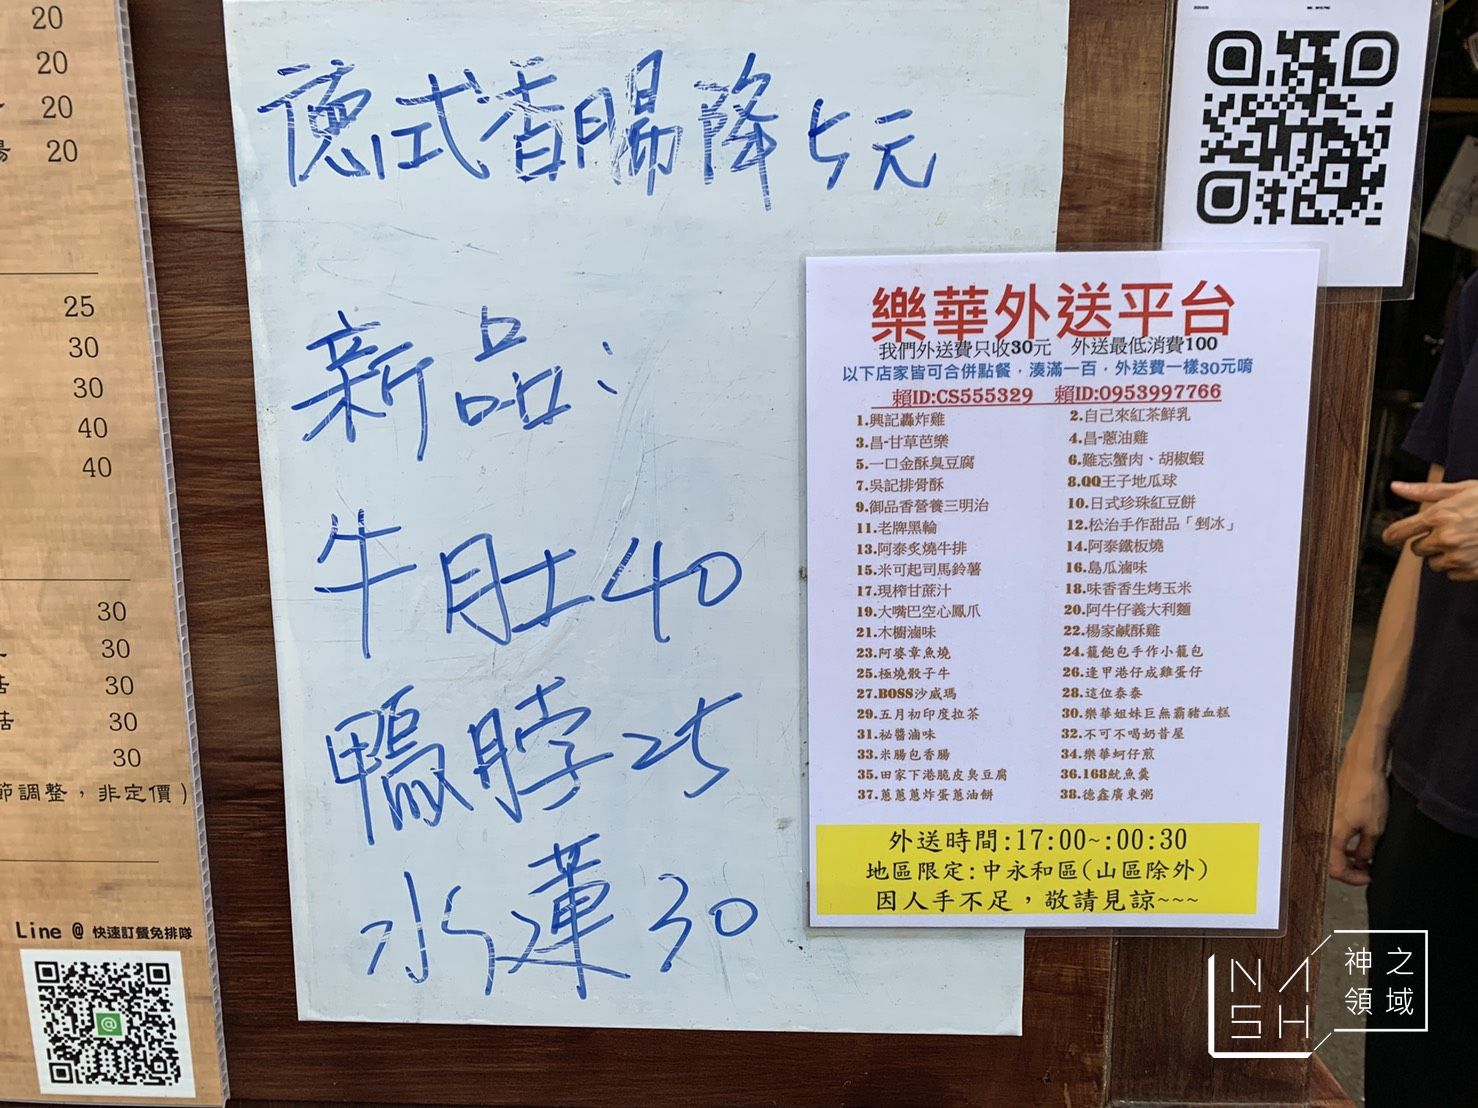 20
20
20
湯 20
25
30
30
40
40
30
30
菇 30
菇 30
30
節調整，非定價)
Line @ 快速訂餐免排隊
德式香腸降5元
新品:
牛肚40
鴨脖25
水蓮30
樂華外送平台
我們外送費只收30元 外送最低消費100
以下店家皆可合併點餐，湊滿一百，外送費一樣30元唷
賴ID:CS555329 賴ID:0953997766
1.興記轟炸雞 2.自己來紅茶鮮乳
3.昌-甘草芭樂 4.昌-蔥油雞
5.一口金酥臭豆腐 6.難忘蟹肉、胡椒蝦
7.吳記排骨酥 8.QQ王子地瓜球
9.御品香營養三明治 10.日式珍珠紅豆餅
11.老牌黑輪 12.松治手作甜品「剉冰」
13.阿泰炙燒牛排 14.阿泰鐵板燒
15.米可起司馬鈴薯 16.島瓜滷味
17.現榨甘蔗汁 18.味香香生烤玉米
19.大嘴巴空心鳳爪 20.阿牛仔義大利麵
21.木櫥滷味 22.楊家鹹酥雞
23.阿婆章魚燒 24.籠飽包手作小籠包
25.極燒骰子牛 26.逢甲港仔成雞蛋仔
27.BOSS沙威瑪 28.這位泰泰
29.五月初印度拉茶 30.樂華姐妹巨無霸豬血糕
31.祕醬滷味 32.不可不喝奶昔屋
33.米腸包香腸 34.樂華蚵仔煎
35.田家下港脆皮臭豆腐 36.168魷魚羹
37.蔥蔥蔥炸蛋蔥油餅 38.德鑫廣東粥
外送時間:17:00~:00:30
地區限定:中永和區(山區除外)
因人手不足，敬請見諒~~~
NASH
神之
領域